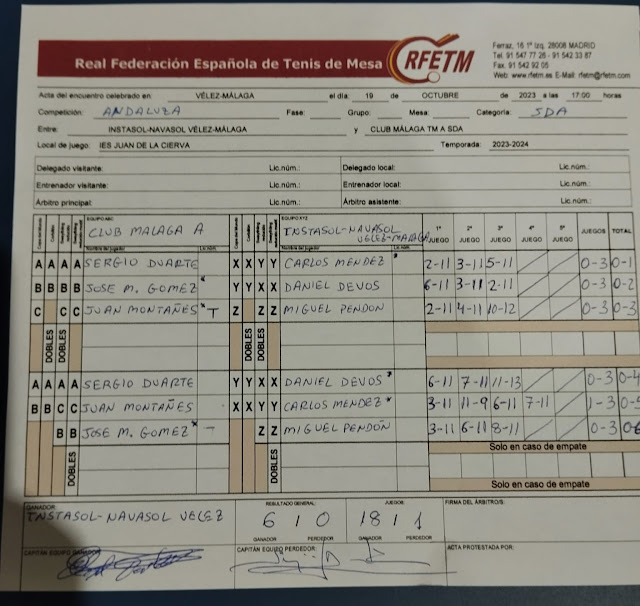 Real Federación Española de Tenis de Mesa
RFETM
Ferraz, 16 1º Izq. 28008 MADRID
Tel. 91 547 77 26 - 91 542 33 87
Fax. 91 542 92 05
Web: www.rfetm.es E-Mail: rfetm@rfetm.com
Acta del encuentro celebrado en: VÉLEZ-MÁLAGA el día: 19 de OCTUBRE de 2023 a las 17:00 horas
Competición: ANDALUZA Fase: Grupo: Mesa: Categoría: SDA
Entre: INSTASOL-NAVASOL VÉLEZ-MÁLAGA y CLUB MÁLAGA TM A SDA
Local de juego: IES JUAN DE LA CIERVA Temporada: 2023-2024
Delegado visitante: Lic.núm.: Delegado local: Lic.núm.:
Entrenador visitante: Lic.núm.: Entrenador local: Lic.núm.:
Árbitro principal: Lic.núm.: Árbitro asistente: Lic.núm.:
EQUIPO ABC EQUIPO XYZ
CLUB MALAGA A INSTASOL-NAVASOL VELEZ-MALAGA 1º JUEGO 2º JUEGO 3º JUEGO 4º JUEGO 5º JUEGO JUEGOS TOTAL
Nombre del jugador Lic.núm. Nombre del jugador
A A A A SERGIO DUARTE X X Y Y CARLOS MENDEZ 2-11 3-11 5-11 0-3 0-1
B B B B JOSE M. GOMEZ Y Y X X DANIEL DEVOS 6-11 3-11 2-11 0-3 0-2
C C C JUAN MONTAÑES T Z Z Z MIGUEL PENDON 2-11 4-11 10-12 0-3 0-3
DOBLES DOBLES DOBLES DOBLES
A A A A SERGIO DUARTE Y Y X X DANIEL DEVOS 6-11 7-11 11-13 0-3 0-4
B B C C JUAN MONTAÑES X X Y Y CARLOS MENDEZ 3-11 11-9 6-11 7-11 1-3 0-5
B B JOSE M. GOMEZ T Z Z MIGUEL PENDON 3-11 6-11 8-11 0-3 0-6
DOBLES DOBLES Solo en caso de empate
Solo en caso de empate
GANADOR: RESULTADO GENERAL: JUEGOS: FIRMA DEL ÁRBITRO/S:
INSTASOL-NAVASOL VELEZ 6 0 18 1
GANADOR PERDEDOR GANADOR PERDEDOR
CAPITÁN EQUIPO GANADOR: CAPITÁN EQUIPO PERDEDOR: ACTA PROTESTADA POR: